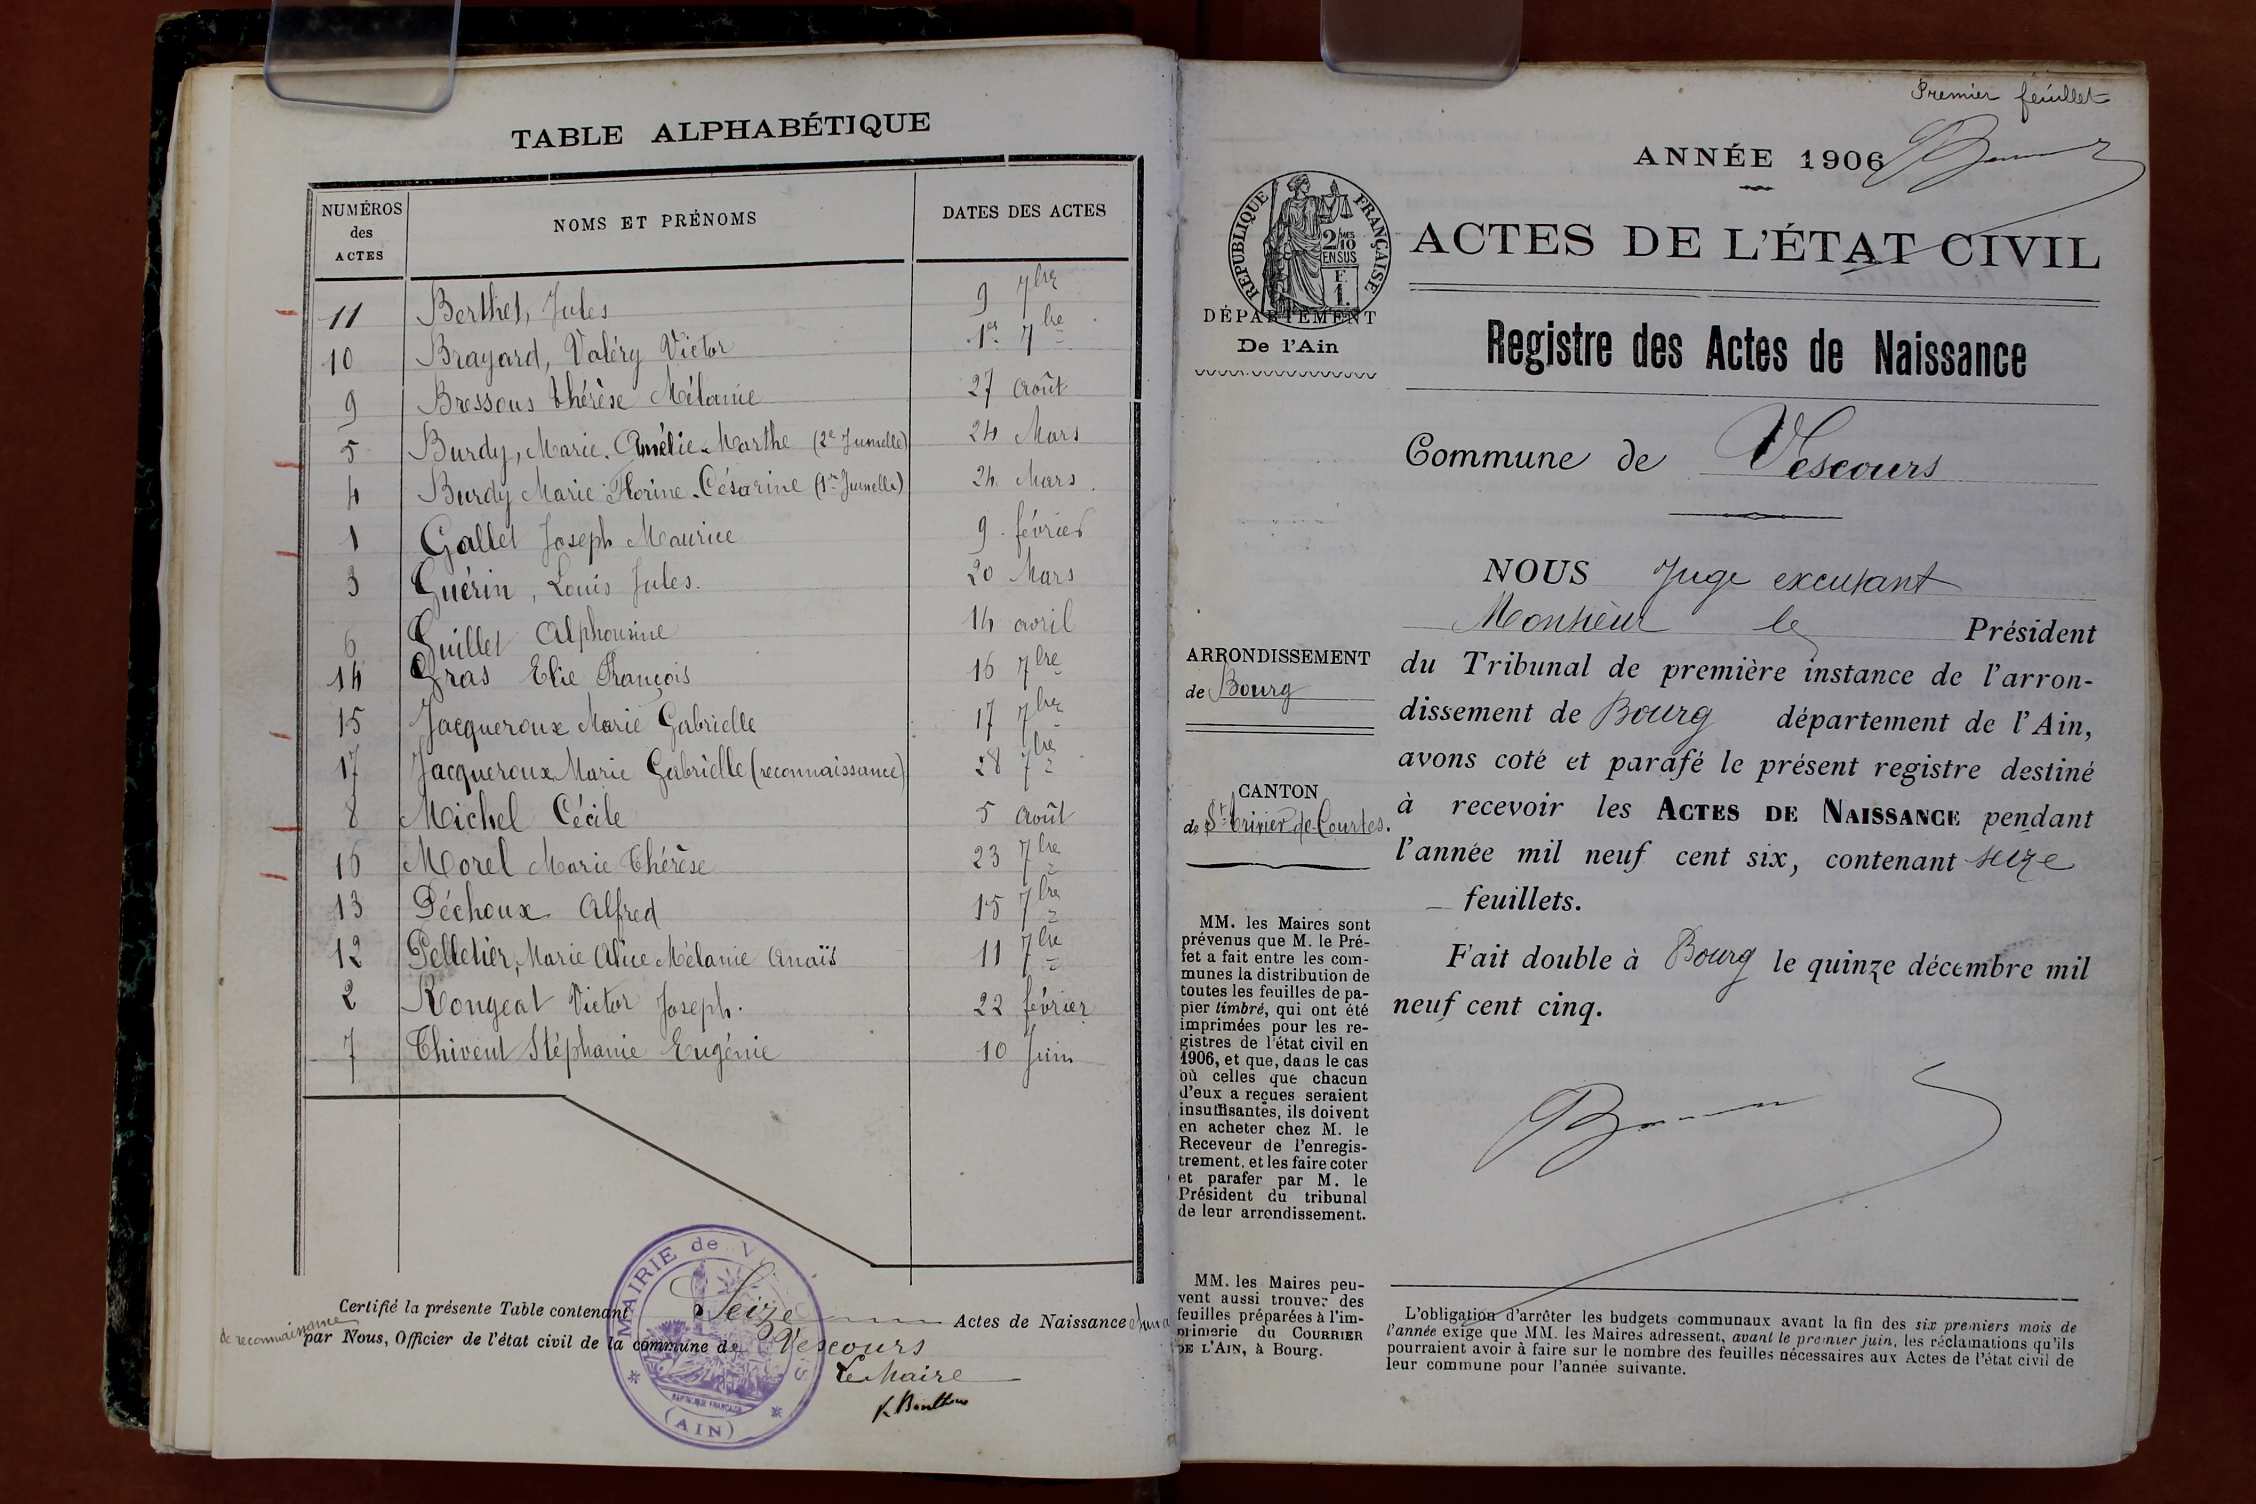 TABLE ALPHABÉTIQUE
NUMÉROS des ACTES
NOMS ET PRÉNOMS
DATES DES ACTES
11 Berthet, Jules 9 7bre
10 Brayard, Valéry Victor 1er 7bre
9 Bressoux Thérèse Mélanie 27 Août
5 Burdy, Marie-Amélie-Marthe (2e Jumelle) 24 Mars
4 Burdy Marie Florine-Césarine (1re Jumelle) 24 Mars
1 Gallet Joseph Maurice 9 février
3 Guérin, Louis Jules. 20 Mars
6 Guillet Alphonsine 14 avril
14 Gras Elie François 16 7bre
15 Jacqueroux Marie Gabrielle 17 7bre
17 Jacqueroux Marie Gabrielle (reconnaissance) 28 7bre
8 Michel Cécile 5 Août
16 Morel Marie Thérèse 23 7bre
13 Péchoux Alfred 15 7bre
12 Pelletier, Marie Alice Mélanie Anaïs 11 7bre
2 Rongeat Victor Joseph. 22 février
7 Thivent Stéphanie Eugénie 10 Juin
Certifié la présente Table contenant Seize Actes de Naissance
de reconnaissance
par Nous, Officier de l'état civil de la commune de Vescours
Le Maire
MAIRIE de V S
RÉPUBLIQUE FRANÇAISE
(AIN)
Premier feuillet
ANNÉE 1906
RÉPUBLIQUE FRANÇAISE
2/10 MES
EN SUS
F.
1.
ACTES DE L'ÉTAT CIVIL
DÉPARTEMENT
De l'Ain
Registre des Actes de Naissance
Commune de Vescours
ARRONDISSEMENT
de Bourg
CANTON
de St Trivier de Courtes.
MM. les Maires sont
prévenus que M. le Pré-
fet a fait entre les com-
munes la distribution de
toutes les feuilles de pa-
pier timbré, qui ont été
imprimées pour les re-
gistres de l'état civil en
1906, et que, dans le cas
où celles que chacun
d'eux a reçues seraient
insuffisantes, ils doivent
en acheter chez M. le
Receveur de l'enregis-
trement, et les faire coter
et parafer par M. le
Président du tribunal
de leur arrondissement.
MM. les Maires peu-
vent aussi trouver des
feuilles préparées à l'im-
primerie du COURRIER
DE L'AIN, à Bourg.
NOUS Juge excusant
Monsieur le Président
du Tribunal de première instance de l'arron-
dissement de Bourg département de l'Ain,
avons coté et parafé le présent registre destiné
à recevoir les ACTES DE NAISSANCE pendant
l'année mil neuf cent six, contenant seize
feuillets.
Fait double à Bourg le quinze décembre mil
neuf cent cinq.
L'obligation d'arrêter les budgets communaux avant la fin des six premiers mois de
l'année exige que MM. les Maires adressent, avant le premier juin, les réclamations qu'ils
pourraient avoir à faire sur le nombre des feuilles nécessaires aux Actes de l'état civil de
leur commune pour l'année suivante.